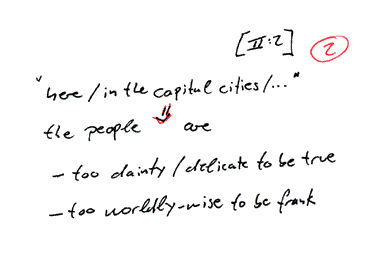 [II:2] 2
"here / in the capital cities /..."
the people are
- too dainty / delicate to be true
- too worldly-wise to be frank